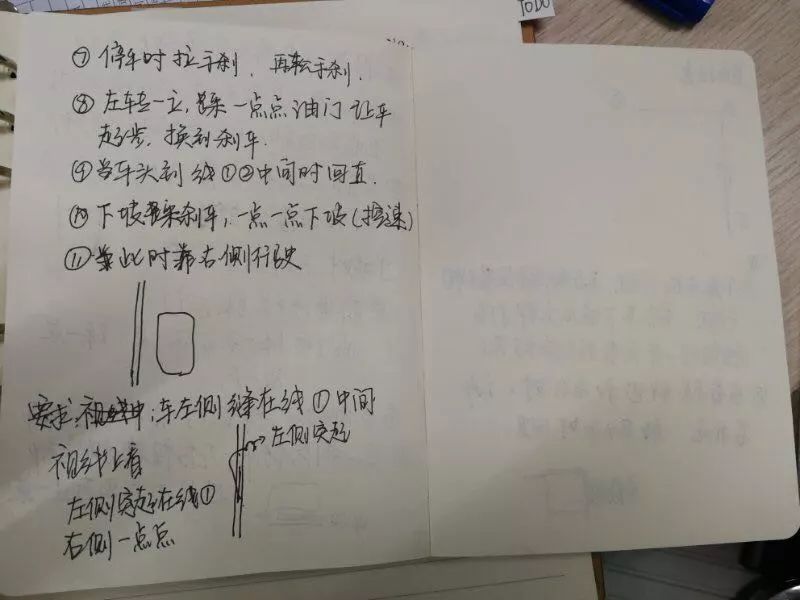 TODO
⑦ 停车时拉手刹，再松手刹.
⑧ 左转一 ，踩一点点油门让车
起步，换到刹车.
⑨ 当车头到线①②中间时回直.
⑩ 下坡踩刹车，一点一点下坡（控速）
⑪ 此时靠右侧行驶
要求：车左侧缝在线①中间
→左侧突起
视线上看
左侧突起在线①
右侧一点点